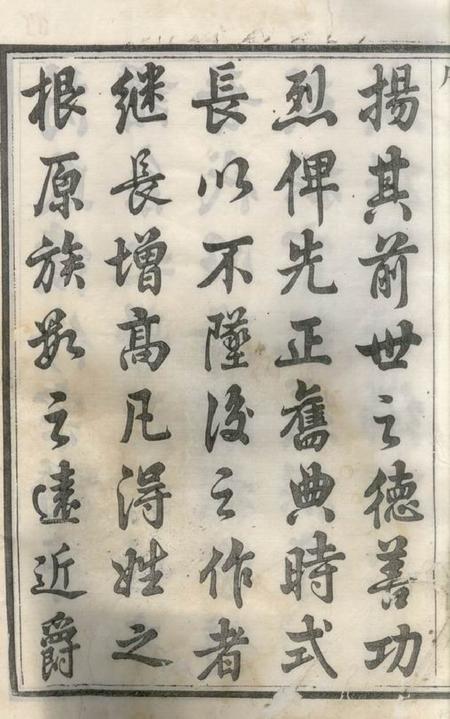 揚其前世之徳善功
烈俾先正舊典時式
長以不墜後之作者
継長增髙凡得姓之
根原族數之遠近爵